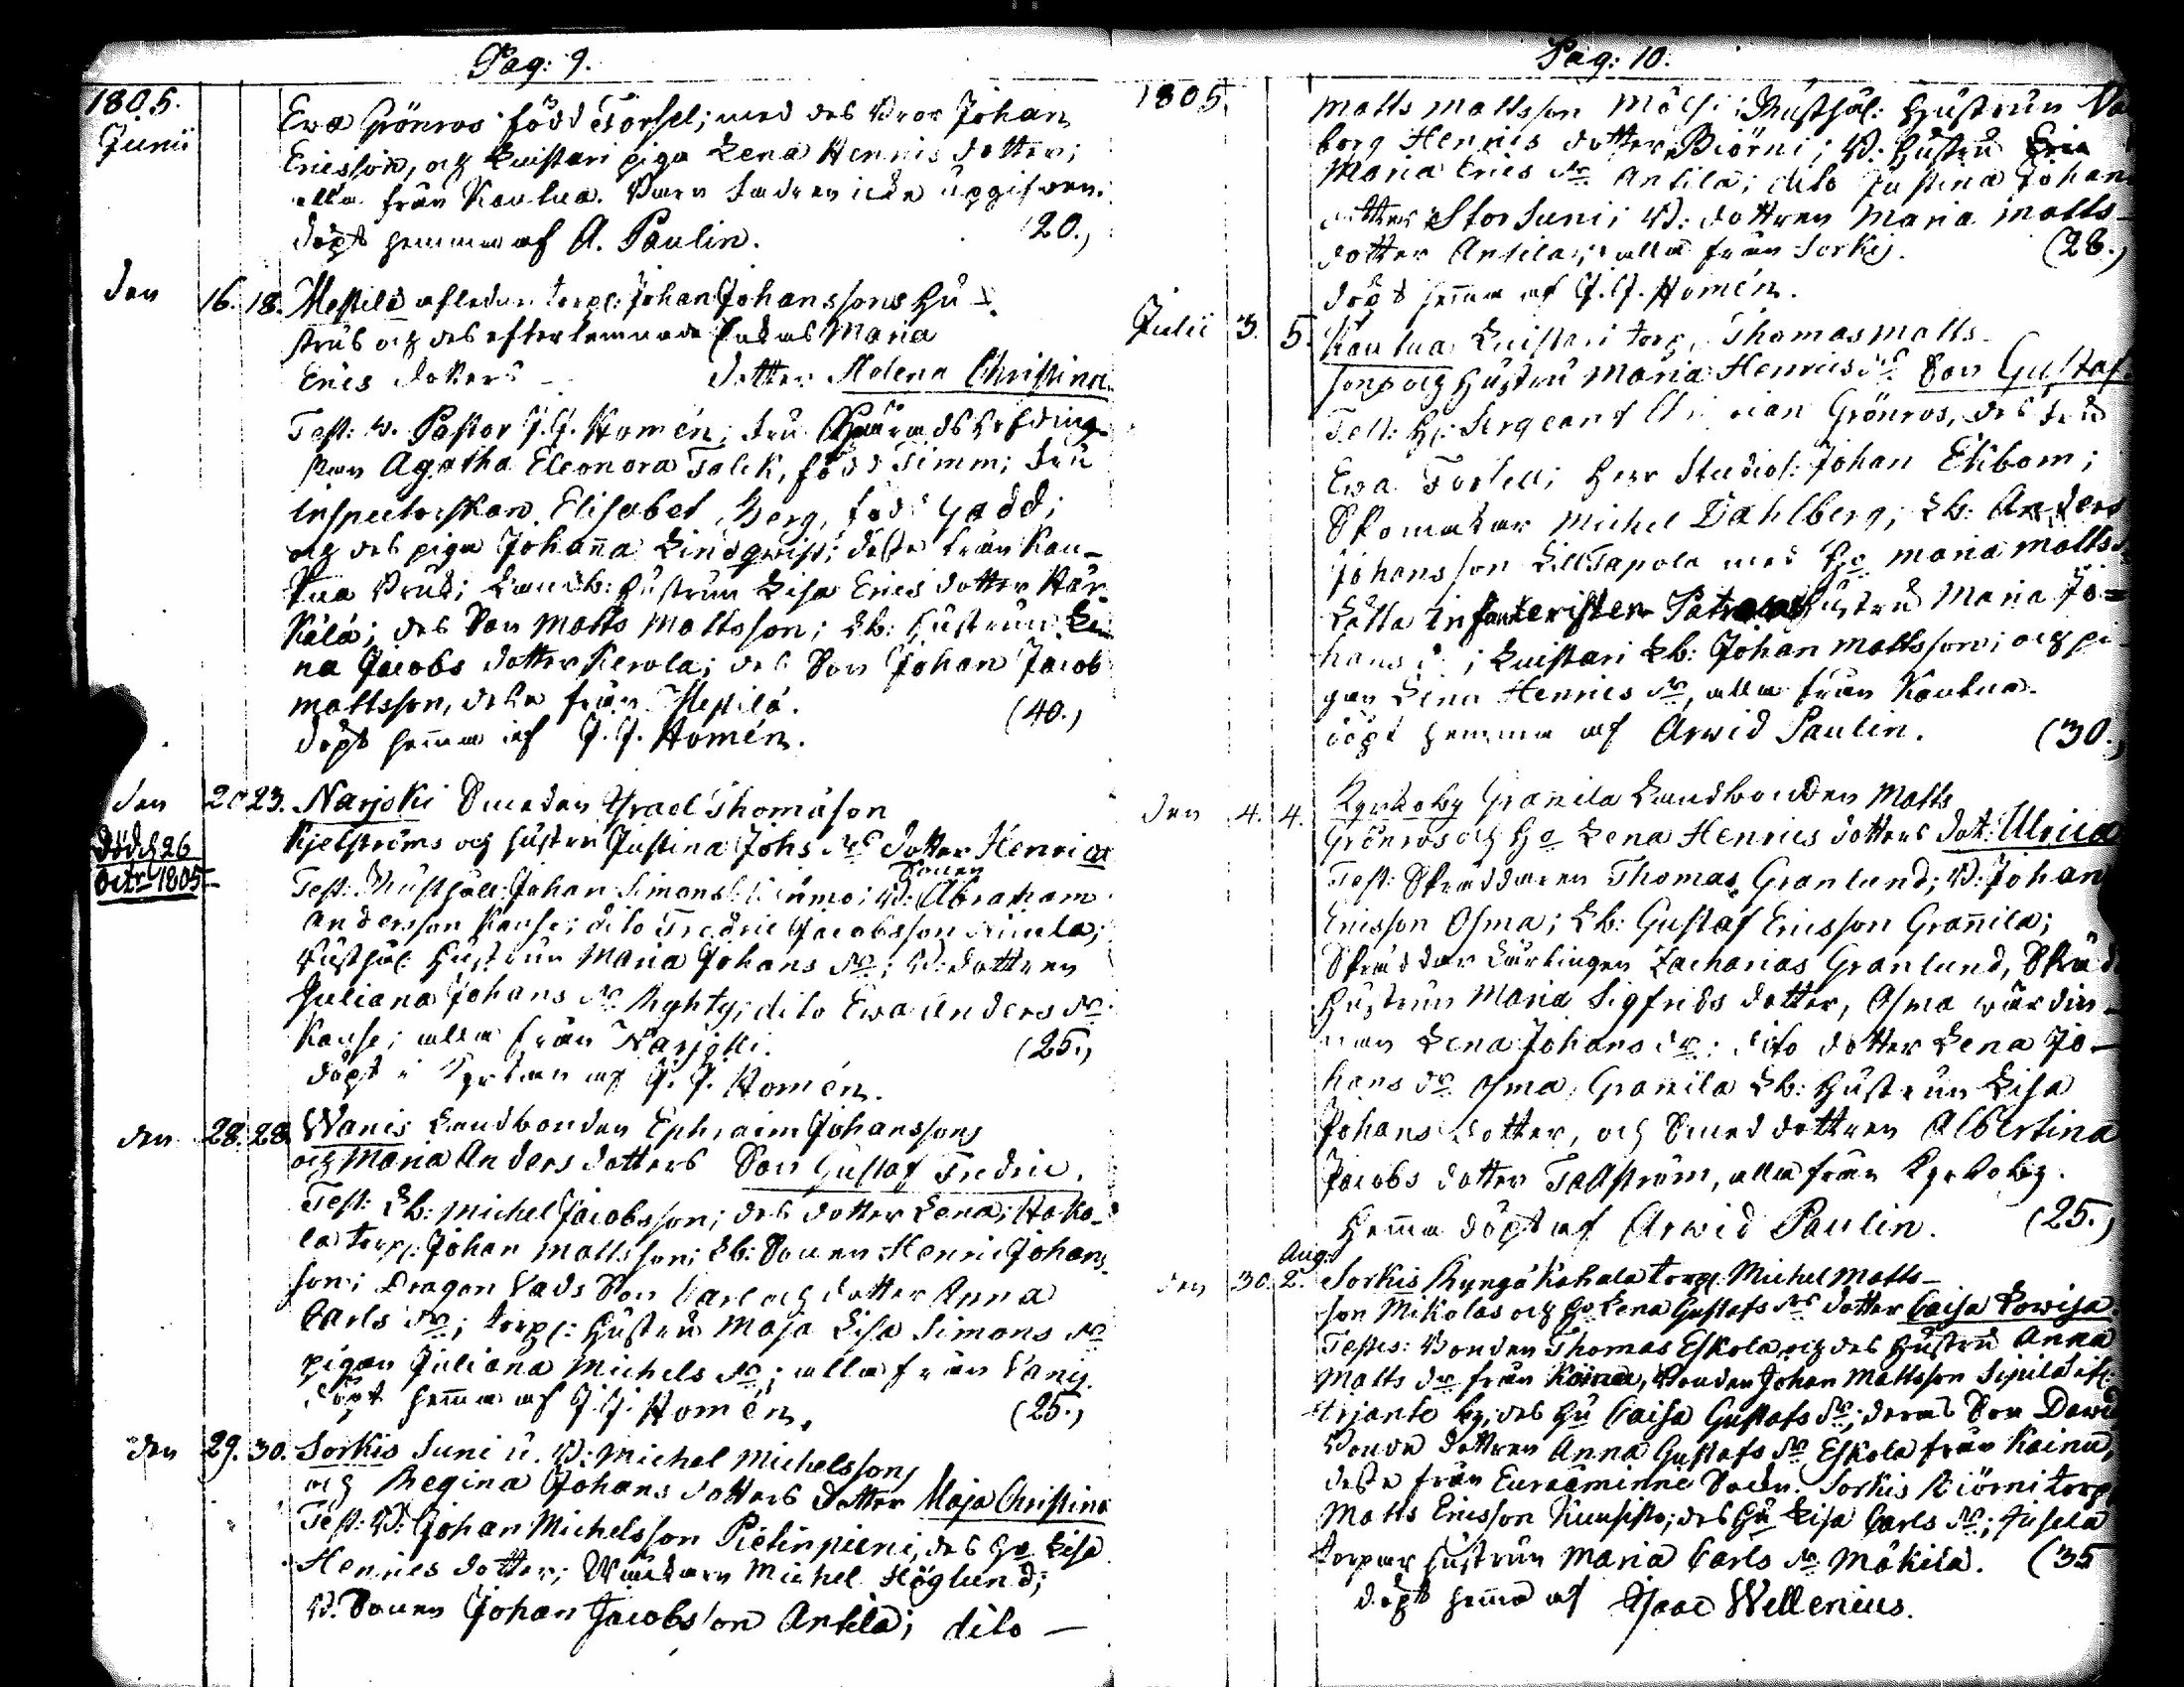 Pag: 9.
1805.
Junii
Ewa Grönros född Forsel; med des Bror Johan
Ericsson, och Luistari piga Lena Henrics dotter;
alla från Kautua. Barn fadren icke upgifwen.
döpt hemma af A. Paulin. (20.)
den 16. 18. Mestilä afledne torp: Johan Johanssons Hu-
strus och des efterlemnade Enkas Maria
Erics dotters dotter Helena Christina.
Test: v. Pastor J. J. Homén; Fru Häradshöfding-
skan Agatha Eleonora Falck, född Timm; Fru
Inspectorskan Elisabet Berg, född Gadd;
och des piga Johanna Lindqwist; desse från Kau-
tua Bruk; Landb: hustrun Lisa Erics dotter Här-
kälä; des Son Matts Mattsson; Lb: hustrun Le-
na Jacobs dotter Kerola; des Son Johan Jacob
Mattsson, desse från Mestilä.
döpt hemma af J. J. Homén. (40.)
den 20 23. Narjoki Smeden Israel Thomasson
Kjelströms och hustru Justina Johs drs dotter Henrica
Test: Rusthåll: Johan Simonss: B: Sonen Abraham
Andersson Kause; dito Fredric Jacobsson
Rusthål: Hustrun Maria Johans dr; B: dottren
Juliana Johans dr Ryhty; dito Ewa Anders dr
Kause; alla från Narjoki. (25.)
döpt i Kyrkan af J. J. Homén.
Död d 26
Octr 1805
den 28. 28. Wanis Landbonden Ephraim Johanssons
och Maria Anders dotters Son Gustaf Fredric.
Test: Lb: Michel Jacobsson; des dotter Lena; Hako-
la torp: Johan Mattsson; Lb: Sonen Henric Johans-
son; Dragon Vads Son Carl och dotter Anna
Carls dr; torp: hustru Maja Lisa Simons dr
pigan Juliana Michels dr; alla från Vanis.
döpt hemma af J. J. Homén. (25.)
den 29. 30. Sorkis Suni u. B: Michel Michelssons
och Regina Johans dotters dotter Maja Christina
Test: B: Johan Michelsson Pietinpieni, des ho Lisa
Henrics dotter; Murkarn Michel Höglund;
B. Sonen Johan Jacobsson Antila; dito –
Pag: 10.
1805
Matts Mattsson Mölsi; Rusthål: hustrun Va
borg Henrics dotter Biörni; B: hustru
Maria Erics dr Antila; dito Justina Johans
dotter Stor Suni; B: dottren Maria Matts-
dotter Antila; alla från Sorkis. (28.)
döpt hemma af J. J. Homén.
Julii 3. 5. Kautua Luistari torp. Thomas Matts-
sons och hustru Maria Henrics drs Son Gustaf
Test: Hr: Sergeant Grönros, des Fru
Ewa Forsell; Herr Studios: Johan Ekbom;
Skomakar Michel Dahlberg; Lb: Anders
Johansson Lill Tapola med ho Maria Matts dr
Lätta Infanteristen hustru Maria Jo-
hans dr; Luistari Lb: Johan Mattsson; och pi-
gan Lena Henrics dr, alla från Kautua.
döpt hemma af Arwid Paulin. (30.)
den 4. 4. Kyrkoby Granila Landbonden Matts
Grönros och ho Lena Henrics dotters dot: Ulrica
Test: Skräddaren Thomas Granlund; B: Johan
Ericsson Osma; Lb: Gustaf Ericsson Granila;
Skräddar Lärlingen Zacharias Granlund, Skräd
hustrun Maria Sigfrids dotter, Osma wärdin-
nan Lena Johans dr; dito dotter Lena Jo-
hans dr Osma; Granila Lb: hustrun Lisa
Johans dotter, och Smed dottren Albertina
Jacobs dotter Fallström, alla från Kyrkoby.
Hemma döpt af Arwid Paulin. (25.)
Aug:
den 30. 2. Sorkis Ryngö Kahala torp: Michel Matts-
son Mikolas och ho Lena Gustafs drs dotter Caisa Lowisa.
Testes: Bonden Thomas Eskola och des hustru Anna
Matts dr från Kainu, Bonden Johan Mattsson Sipilä
Irjante by, des hu Caisa Gustafs dr; deras Son David
Bonde dottren Anna Gustafs dr Eskola från Kainu,
desse från Euraåminne Sockn. Sorkis Biörni torp:
Matts Ericsson Kuusisto; des hu Lisa Carls dr; Jusela
torpar hustrun Maria Carls dr Mäkilä. (35
döpt hemma af Isaac Wellenius.